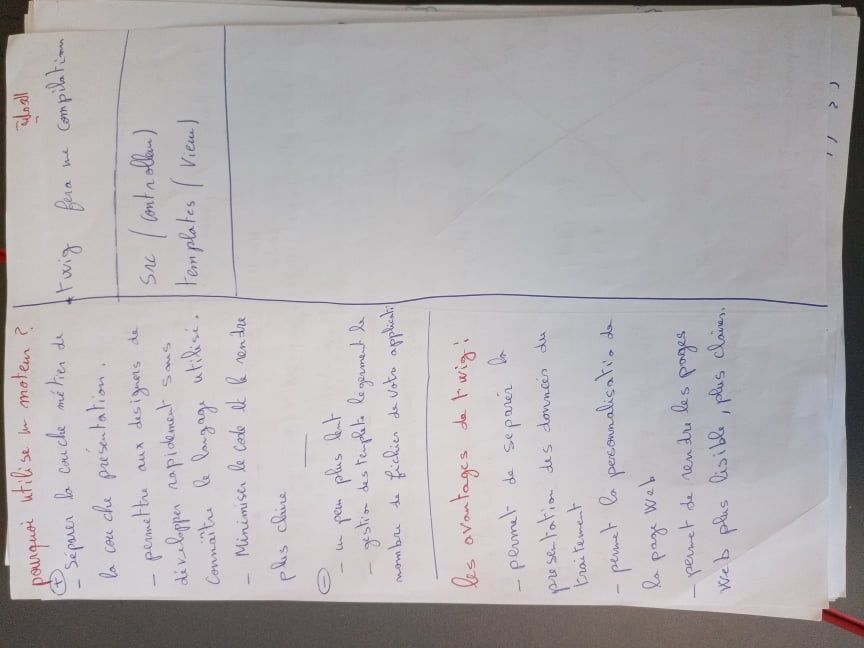 pourquoi utilise un moteur ?
+
- Séparer la couche métier de
la couche présentation.
- permettre aux designers de
développer rapidement sans
connaître le langage utilisé.
- Minimiser le code et le rendre
plus claire
-
- un peu plus lent
- gestion des templets légerment le
nombre de fichier de votre applicati
les avantages de twig :
- permet de separér la
presentation des données du
traitement
- permet la personnalisatio de
la page web
- permet de rendre les pages
web plus lisible, plus claires.
twig fera une compilation
src / (controlleur)
templates / (view)